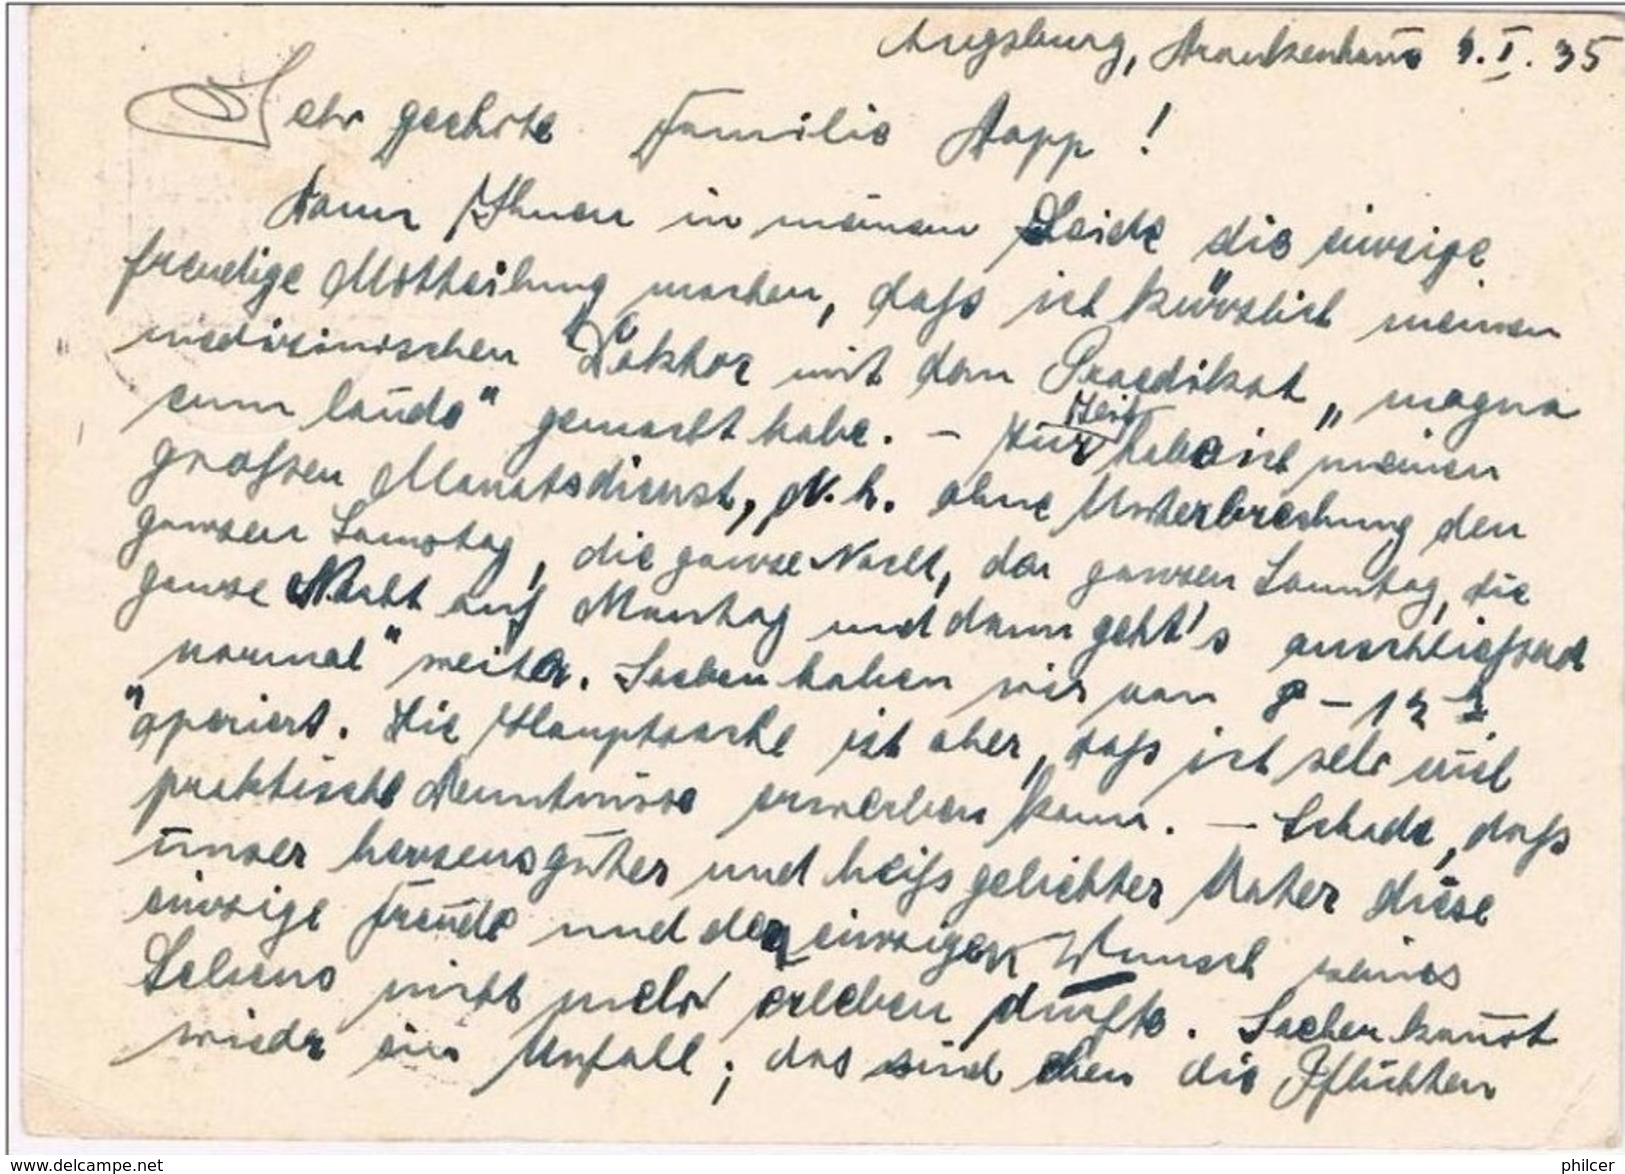 Augsburg, Krankenhaus 9. I. 35
Sehr geehrte Familie Rapp!
Kann Ihnen in meinem Leide die einzige
freudige Mitteilung machen, daß ich kürzlich meinen
medizinischen Doktor mit dem Praedikat „magna
cum laude" gemacht habe. – Zur Zeit habe ich meinen
großen Monatsdienst, d. h. ohne Unterbrechung den
ganzen Samstag, die ganze Nacht, den ganzen Sonntag, die
ganze Nacht auf Montag und dann geht's anschließend
"normal" weiter. Soeben haben wir von 8 – 12
operiert. Die Hauptsache ist aber, daß ich sehr viel
praktische Kenntnisse erwerben kann. – Schade, daß
unser herzensguter und heißgeliebter Vater diese
einzige Freude und den einzigen Wunsch seines
Lebens nicht mehr erleben dürfte. Soeben kommt
wieder ein Unfall; das sind eben die Pflichten
www.delcampe.net
philcer